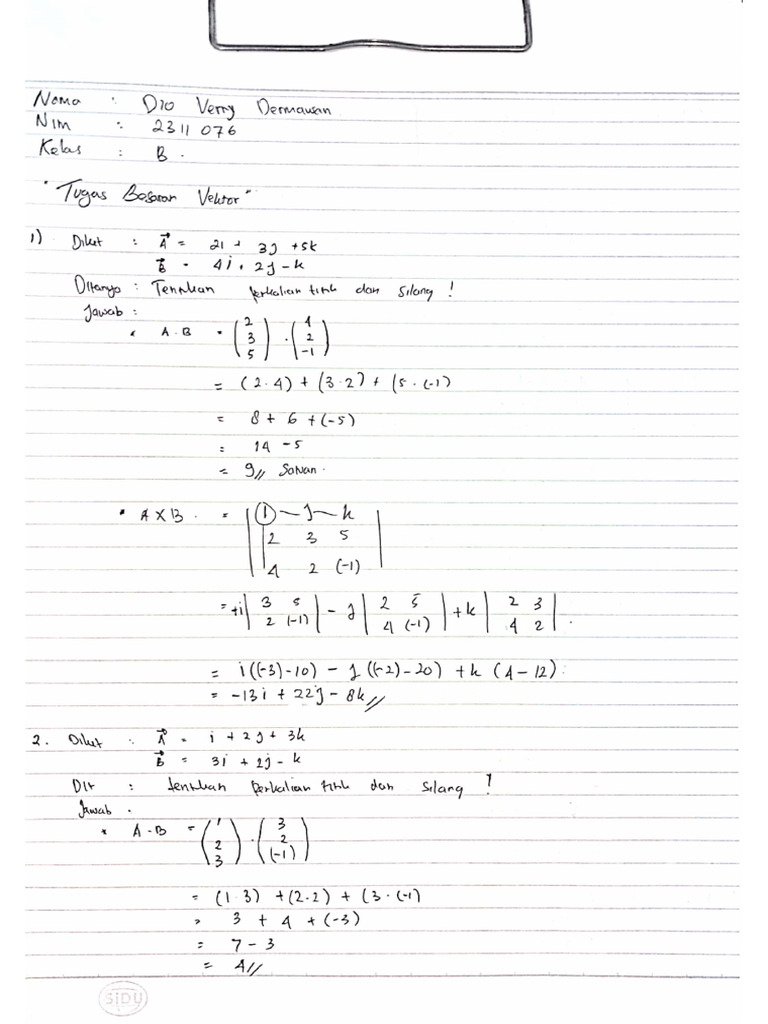 Nama : Dio Verry Dermawan
Nim : 2311076
Kelas : B.
"Tugas Besaran Vektor"
1) Diket : A⃗ = 2i + 3j + 5k
B⃗ = 4i + 2j - k
Ditanya : Tentukan perkalian titik dan silang !
Jawab :
• A . B = (2 3 5) . (4 2 -1)
= (2.4) + (3.2) + (5.(-1)
= 8 + 6 + (-5)
= 14 - 5
= 9// Satuan.
• A X B. = | i - j - k |
| 2 3 5 |
| 4 2 (-1) |
= +i | 3 5 | - j | 2 5 | + k | 2 3 |
| 2 (-1) | | 4 (-1) | | 4 2 | .
= i((-3)-10) - j((-2)-20) + k (4-12).
= -13i + 22j - 8k//
2. Diket : A⃗ = i + 2j + 3k
B⃗ = 3i + 2j - k
Dit : tentukan perkalian titik dan silang !
Jawab .
• A . B = (1 2 3) . (3 2 (-1))
= (1.3) + (2.2) + (3.(-1)
= 3 + 4 + (-3)
= 7 - 3
= 4//
SiDU